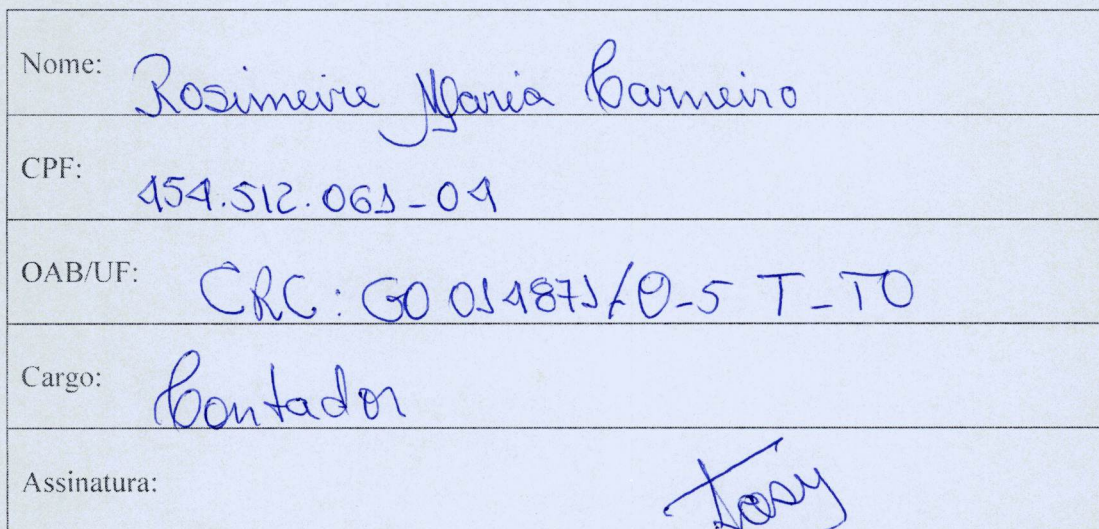 Nome: Rosimeire Maria Carneiro
CPF: 454.512.061-04
OAB/UF: CRC: GO 014871/O-5 T-TO
Cargo: Contador
Assinatura: Rosy